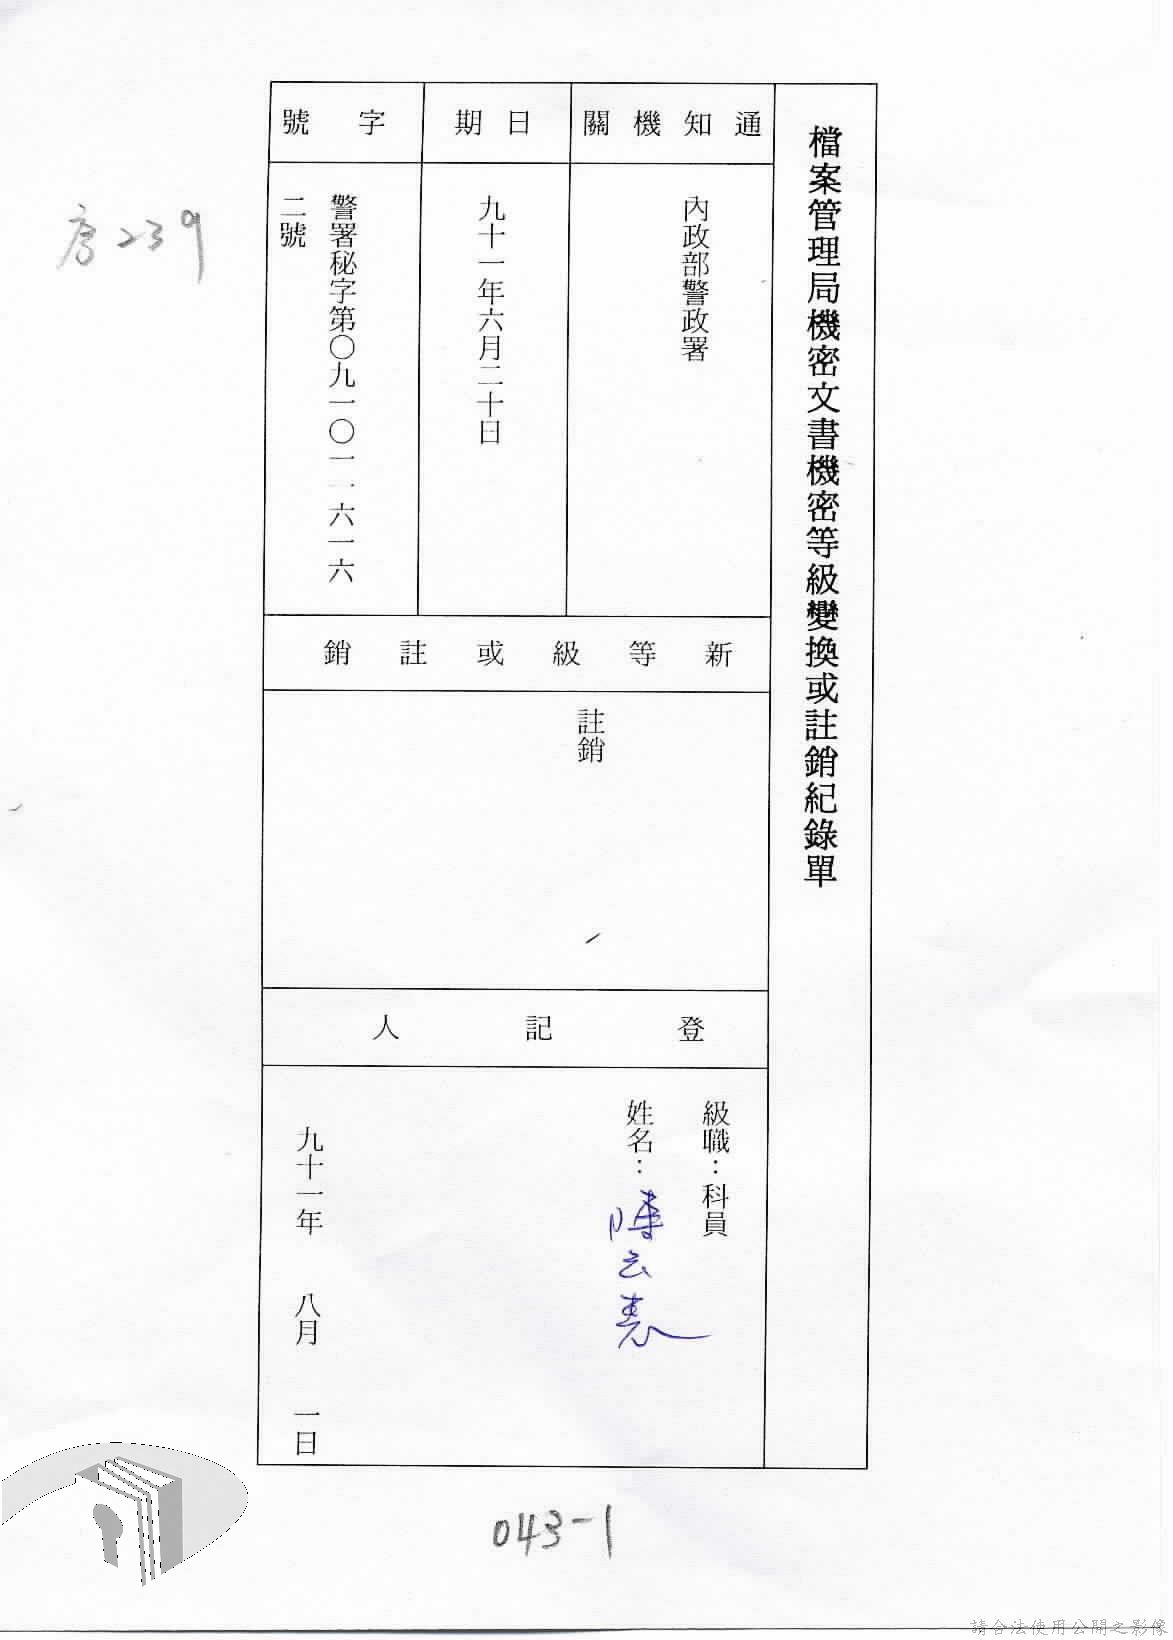 檔案管理局機密文書機密等級變換或註銷紀錄單
通知機關
內政部警政署
日期
九十一年六月二十日
字號
警署秘字第〇九一〇一一六一六
二號
新等級或註銷
註銷
登記人
級職：科員
姓名：陳云惠
九十一年 八月 一日
239
043-1
請合法使用公開之影像